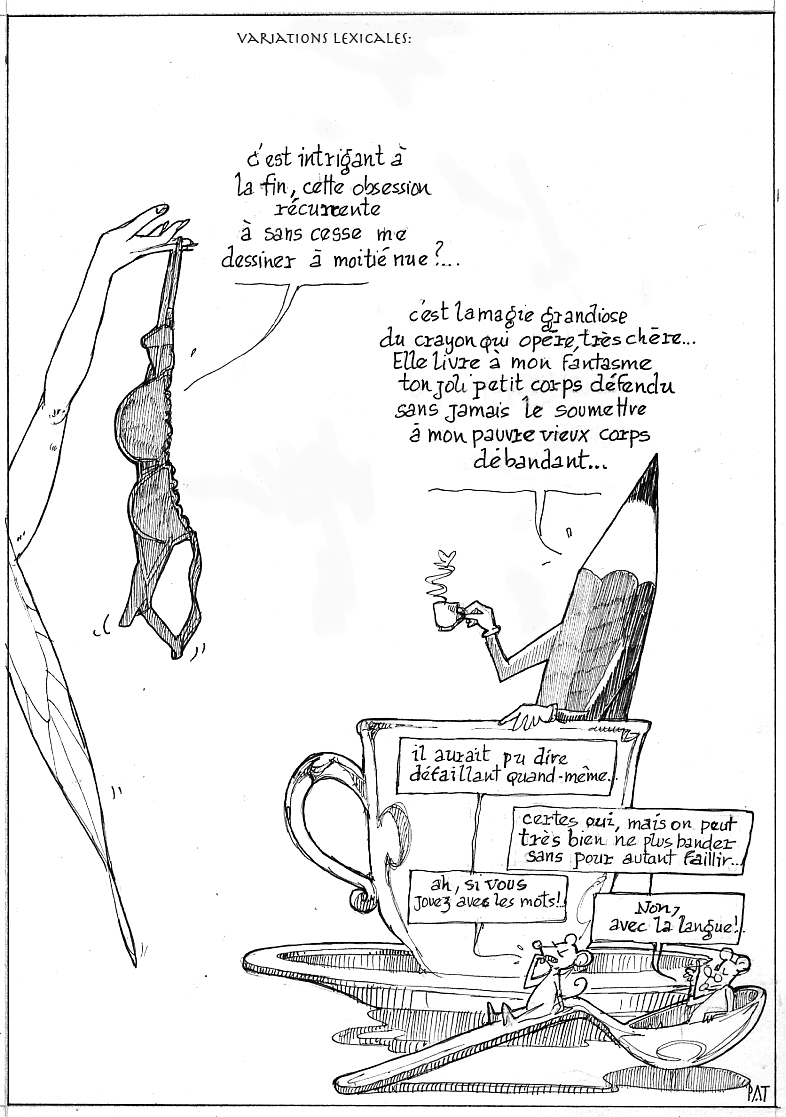 VARIATIONS LEXICALES:
c'est intrigant à
la fin, cette obsession
récurrente
à sans cesse me
dessiner à moitié nue ?...
c'est la magie grandiose
du crayon qui opère, très chère...
Elle livre à mon fantasme
ton joli petit corps défendu
sans jamais le soumettre
à mon pauvre vieux corps
débandant...
il aurait pu dire
défaillant quand-même.
certes oui, mais on peut
très bien ne plus bander
sans pour autant faillir...
ah, si vous
jouez avec les mots!.
Non,
avec la langue!.
PAT